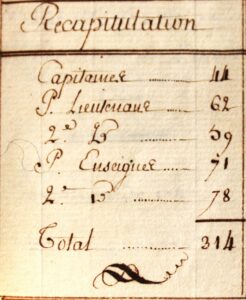 Recapitulation
Capitaines ........ 44
P. Lieutenans ....... 62
2.e ........ 59
P. Enseignes ....... 71
2.e ........ 78
Total ............ 314